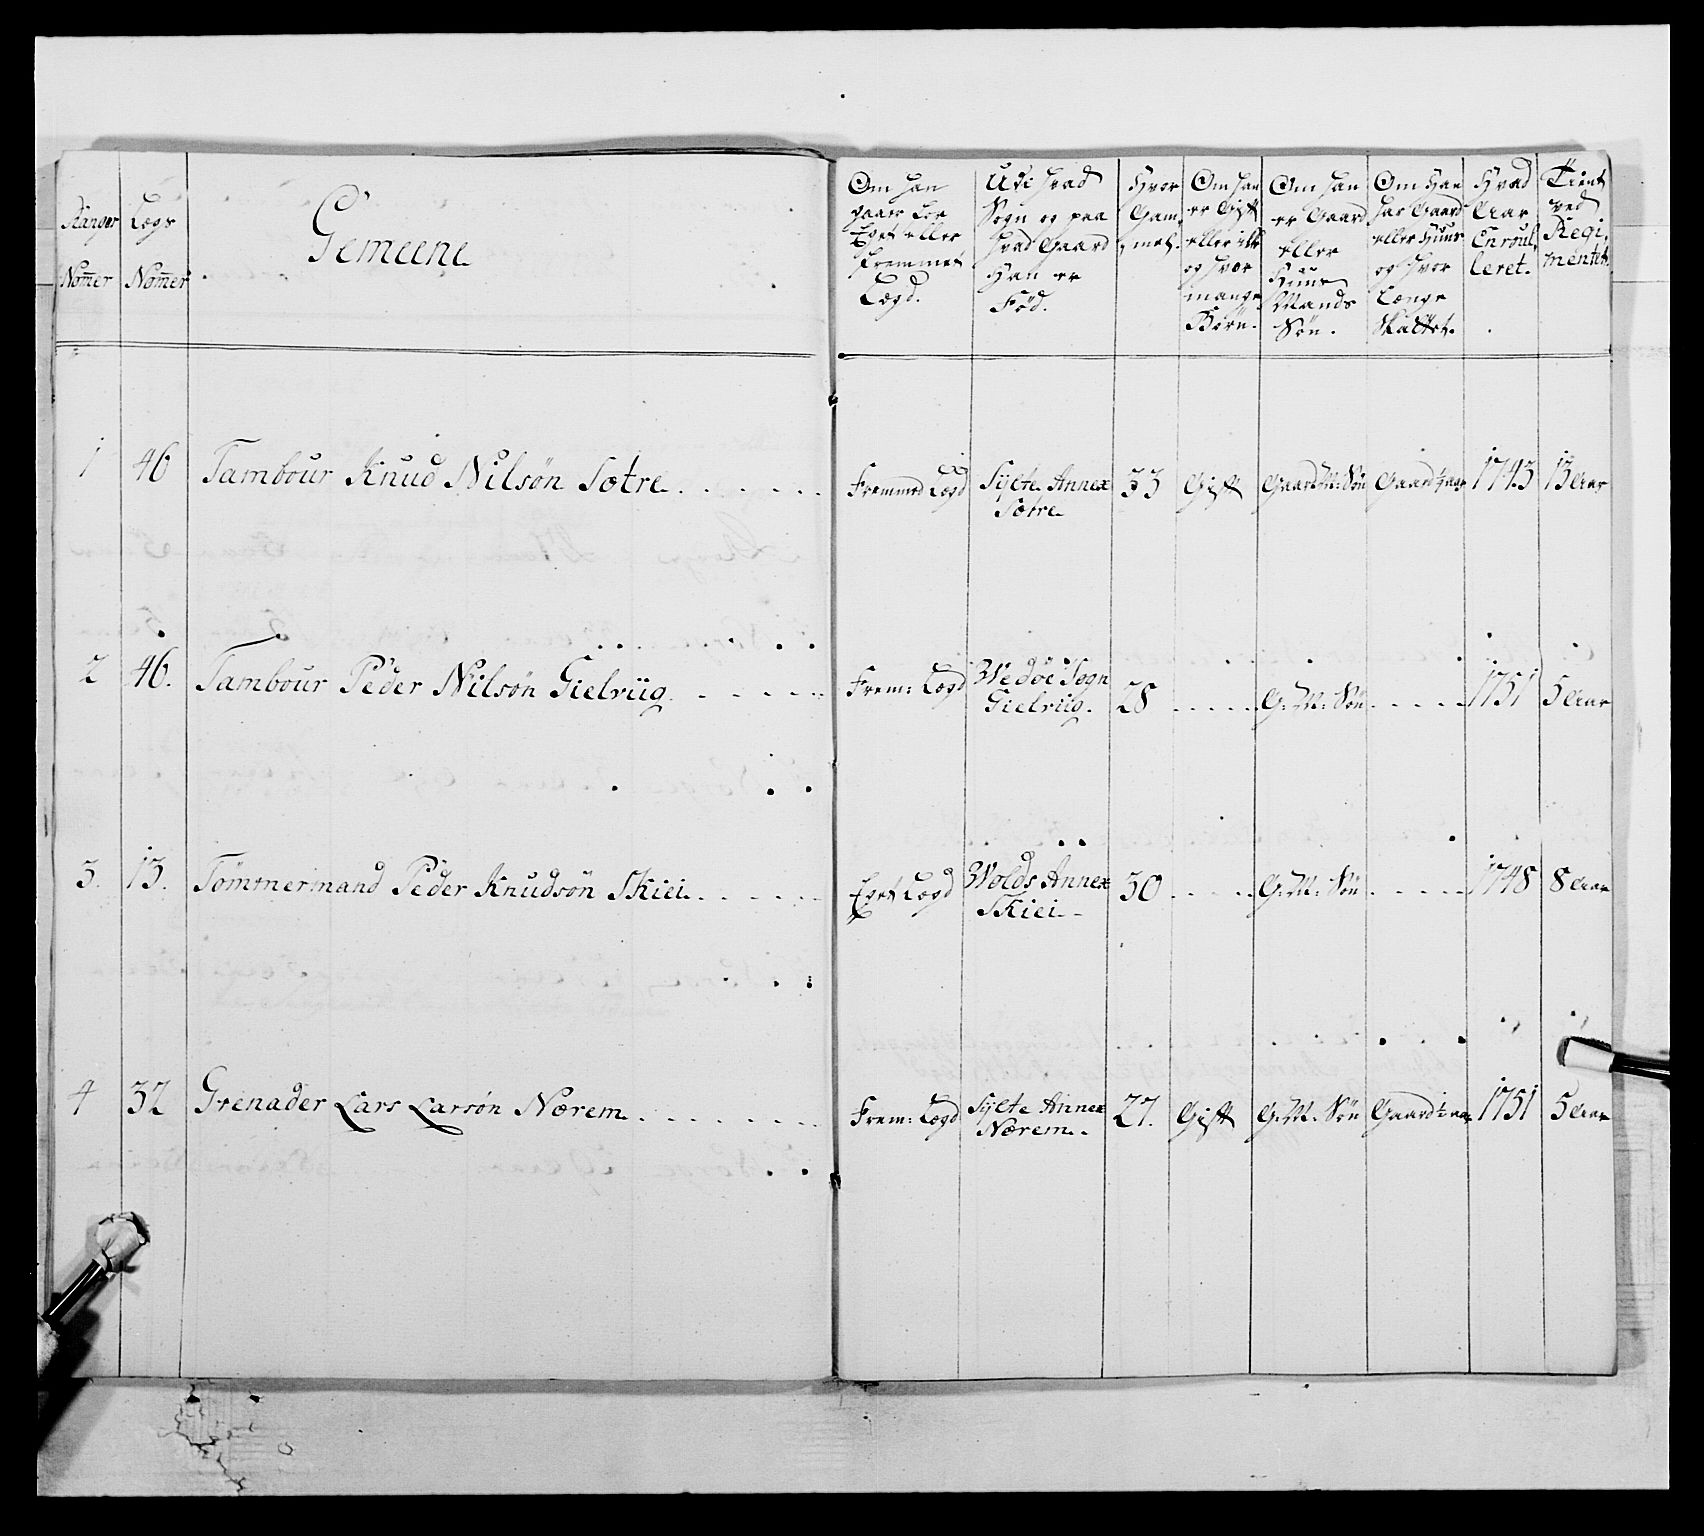 Lægs
Nomer Nomer
Gemeene
Om han
gaaer for
Eget eller
fremmet
Lægd.
Udi hvad
Sogn og paa
hvad Gaard
han er
Fød.
Hvor
Gam,
mel.
Om han
er Gift
eller ikke
og hvor
mange
Børn.
Om han
er Gaard
eller
Huus
Mands
Søn.
Om han
har Gaard
eller Huus
og hvor
længe
Skattet.
Hvad
Aar
Enroul,
leret.
Tient
ved
Regi,
mentet.
1 46 Tambour Knud Nilsøn Sætre Fremmed Lægd Sylte Annex 33 Gift Gaard M: Søn Gaard aar 1743 13 Aar
Sætre
2 46. Tambour Peder Nilsøn Gielriig Frem: Lægd Wedøe Sogn 28 G: M: Søn 1751 5 Aar
Gielriig.
3. 13. Tømmermand Peder Knudsøn Skiei Eget Lægd Wolds Annex 30 G: M: Søn 1748 8 Aar
Skiei
4 32 Grenader Lars Larsøn Nærem Frem: Lægd Sylte Annex 27. Gift G: M: Søn Gaard 1 aar 1751 5 Aar
Nærem.